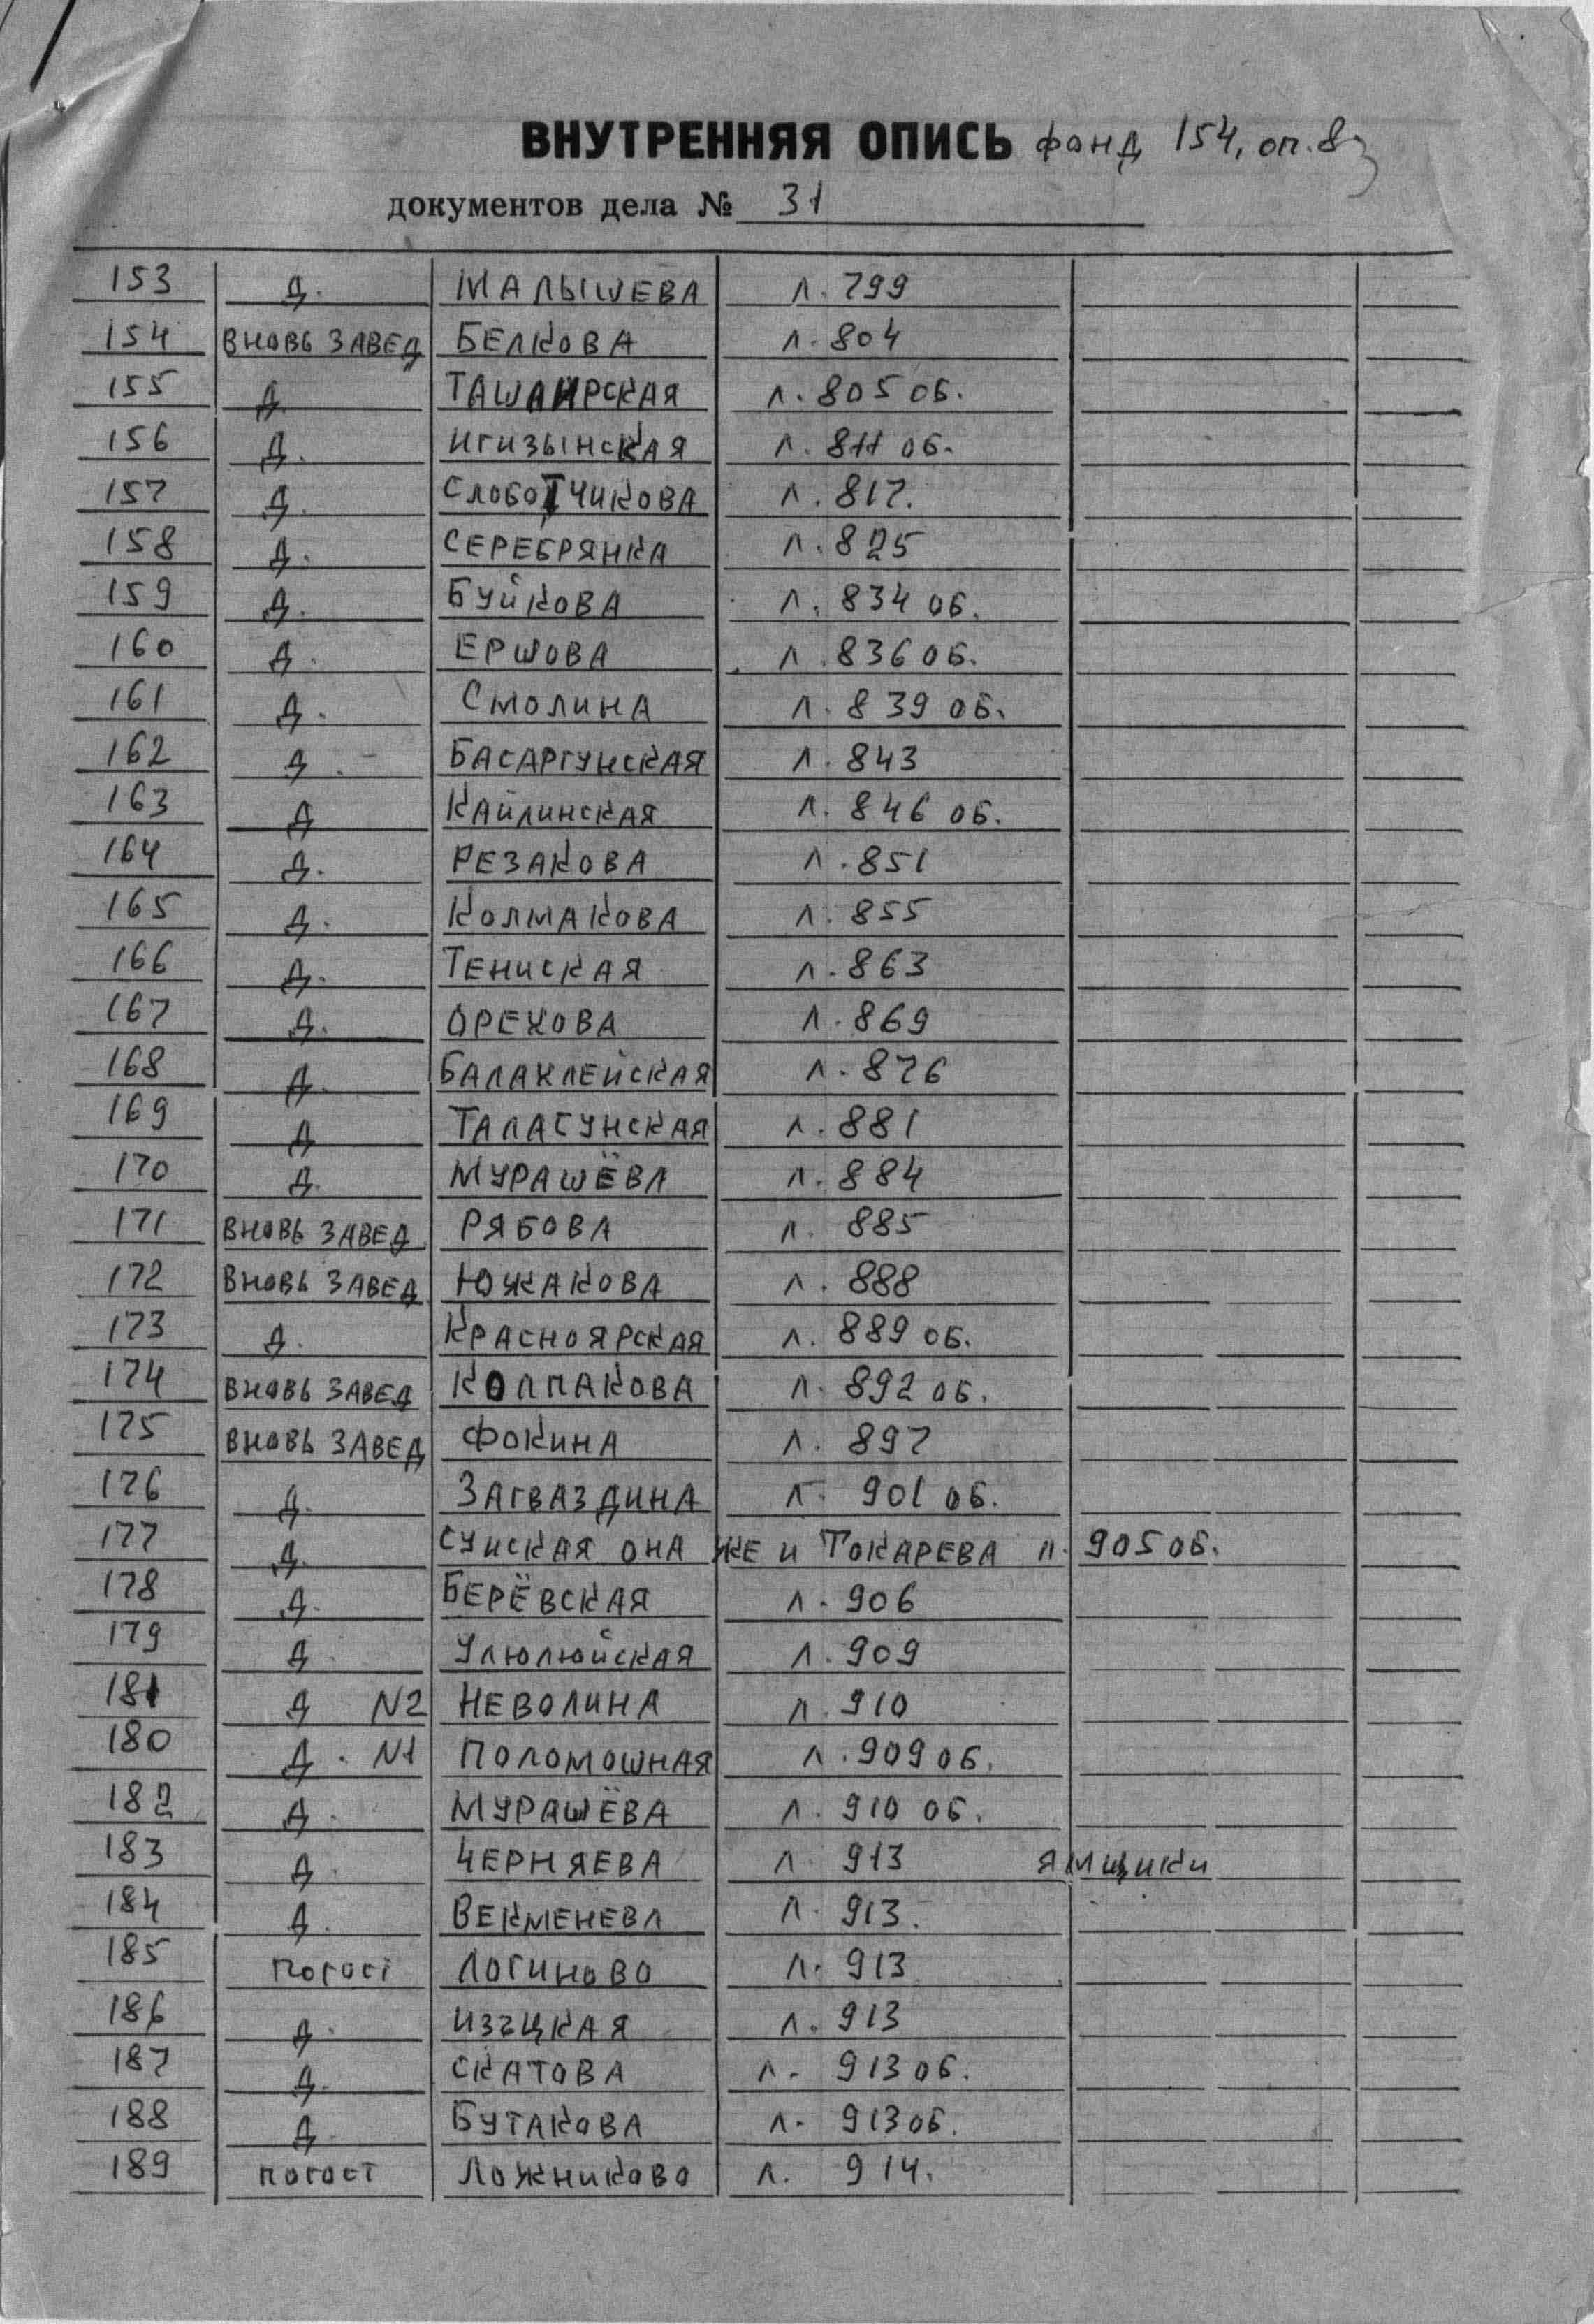 ВНУТРЕННЯЯ ОПИСЬ фонд 154, оп. 8
документов дела № 31
153 Д. МАЛЫШЕВА Л. 799
154 ВНОВЬ ЗАВЕД БЕЛКОВА Л. 804
155 Д. ТАШАИРСКАЯ Л. 805 ОБ.
156 Д. ИГИЗЫНСКАЯ Л. 811 ОБ.
157 Д. СЛОБОТЧИКОВА Л. 817.
158 Д. СЕРЕБРЯНКА Л. 825
159 Д. БУЙКОВА Л. 834 ОБ.
160 Д. ЕРШОВА Л. 836 ОБ.
161 Д. СМОЛИНА Л. 839 ОБ.
162 Д. БАСАРГУНСКАЯ Л. 843
163 Д КАЙЛИНСКАЯ Л. 846 ОБ.
164 Д. РЕЗАКОВА Л. 851
165 Д. КОЛМАКОВА Л. 855
166 Д. ТЕНИСКАЯ Л. 863
167 Д. ОРЕХОВА Л. 869
168 Д. БАЛАКЛЕЙСКАЯ Л. 876
169 Д ТАЛАСУНСКАЯ Л. 881
170 Д. МУРАШЁВА Л. 884
171 ВНОВЬ ЗАВЕД РЯБОВА Л. 885
172 ВНОВЬ ЗАВЕД ЮЖАКОВА Л. 888
173 Д. КРАСНОЯРСКАЯ Л. 889 ОБ.
174 ВНОВЬ ЗАВЕД КОЛПАКОВА Л. 892 ОБ.
175 ВНОВЬ ЗАВЕД ФОКИНА Л. 897
176 Д. ЗАГВАЗДИНА Л. 901 ОБ.
177 Д. СУЙСКАЯ ОНА ЖЕ И ТОКАРЕВА Л. 905 ОБ.
178 Д. БЕРЁВСКАЯ Л. 906
179 Д УЛЮЛЮЙСКАЯ Л. 909
181 Д N2 НЕВОЛИНА Л. 910
180 Д. N1 ПОЛОМОШНАЯ Л. 909 ОБ.
182 Д. МУРАШЁВА Л. 910 ОБ.
183 Д. ЧЕРНЯЕВА Л. 913 ЯМЩИКИ
184 Д. ВЕКМЕНЕВА Л. 913.
185 ПОГОСТ ЛОГИНОВО Л. 913
186 Д. Л. 913
187 Д. СКАТОВА Л. 913 ОБ.
188 Д. БУТАКОВА Л. 913 ОБ.
189 ПОГОСТ ЛОЖНИКОВО Л. 914.